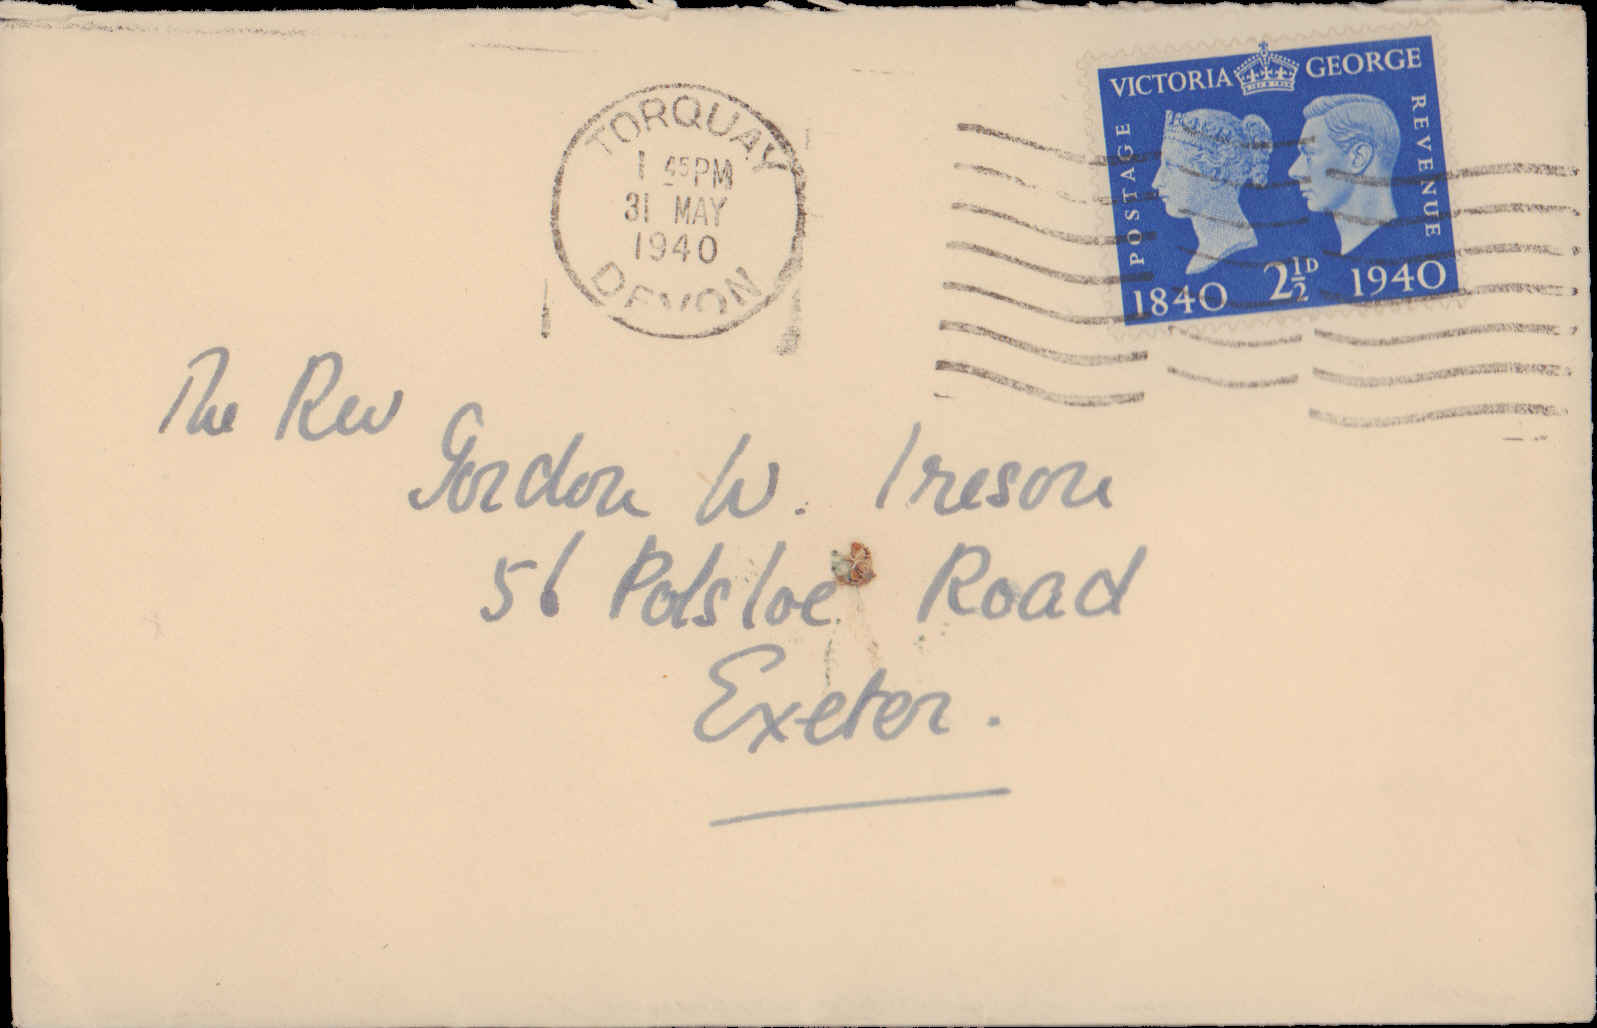 TORQUAY
1 45PM
31 MAY
1940
DEVON
VICTORIA GEORGE
POSTAGE
REVENUE
1840 2½D 1940
The Rev
Gordon W. Ireson
56 Polsloe Road
Exeter.